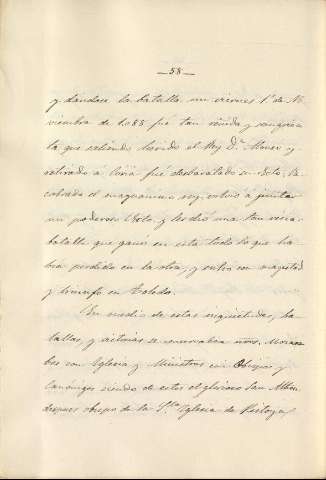 —58—
y dandose la batalla un viernes 1º de No
viembre de 1.088 fué tan reñida y sangrien
ta que saliendo herido el Rey D.n Alonso y
retirado á Coria fué desbaratado su Ecto. Re
cobrado el magnanimo rey, volvió á juntar
un poderoso Ecto. y les dió una tan recia
batalla que ganó en esta todo lo que ha
bia perdido en la otra, y entró con magestad
y triunfo en Toledo.
En medio de estas inquietudes, ba
tallas, y victorias se renovaban
con Iglesia y Ministros con Obispos y
Canonigos siendo de estos el glorioso San
despues obispo de la S.ta Iglesia de